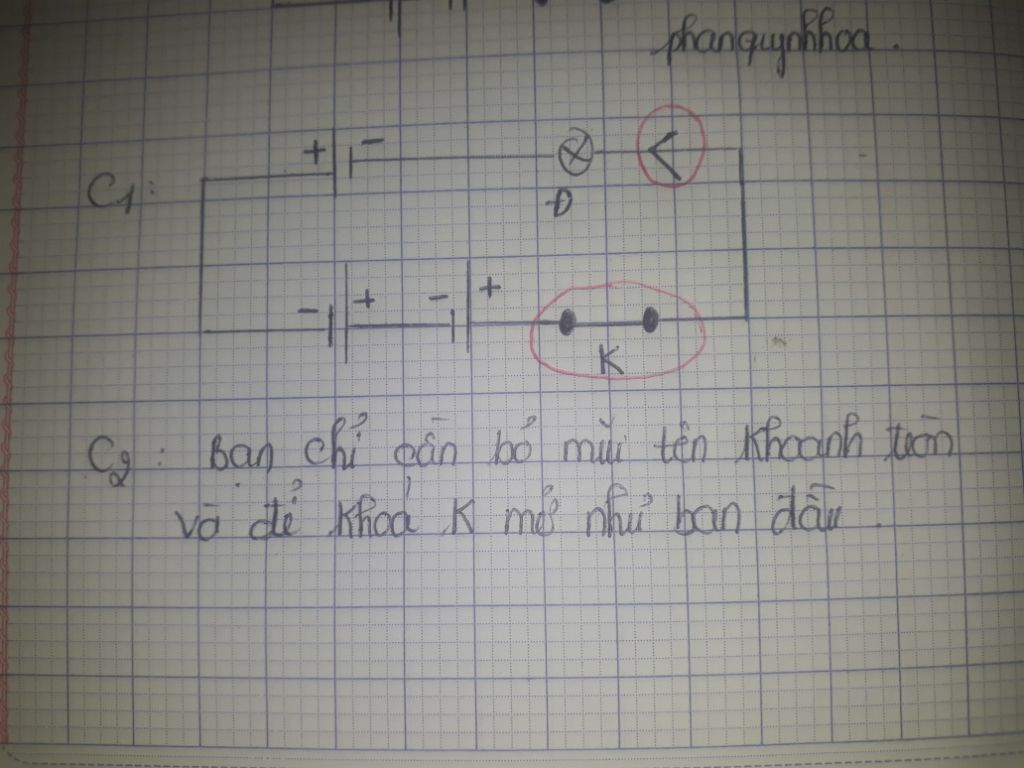 phanquynhhoa.
+ -
C1:
Đ
- + - +
K
C2: Bạn chỉ cần bỏ mũi tên khoanh tròn
và để khoá K mở như ban đầu.